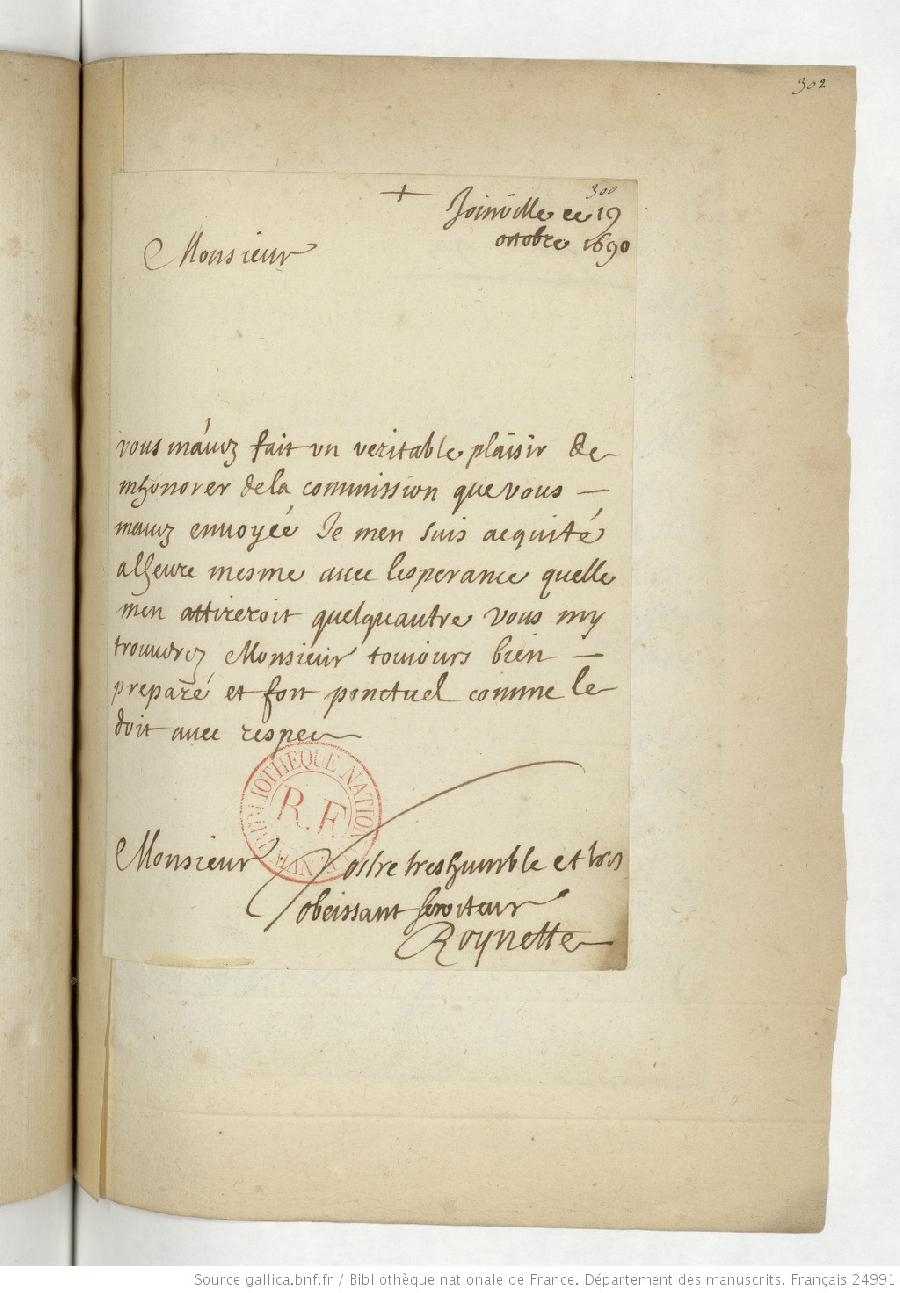 302
300
+ Joinville ce 19
octobre 1690
Monsieur
vous m'auez fait vn veritable plaisir de
mhonorer dela commission que vous —
mauez enuoyée Je men suis acquité
alheure mesme auec lesperance quelle
men attireroit quelquautre vous my
trouuerez Monsieur toujours bien —
preparé et fort ponctuel comme le
doit auec respec
BIBLIOTHEQUE NATIONALE MANUSCRITS
R.F.
Monsieur Vostre tres humble et tres
obeissant seruiteur
Roynette
Source gallica.bnf.fr / Bibliothèque nationale de France. Département des manuscrits. Français 24991